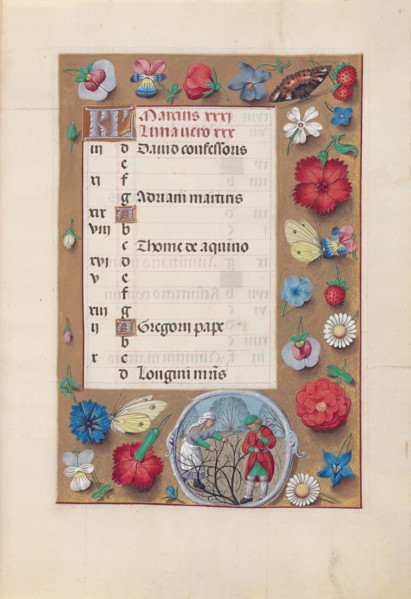 KL Marcius xxxi
Luna vero xxx
iii d Dauid confessoris
e
xi f
g Adriani martiris
xix A
viii b
c Thome de aquino
xvi d
v e
f
xiii g
ii A Gregorii pape
b
x c
d Longini mris